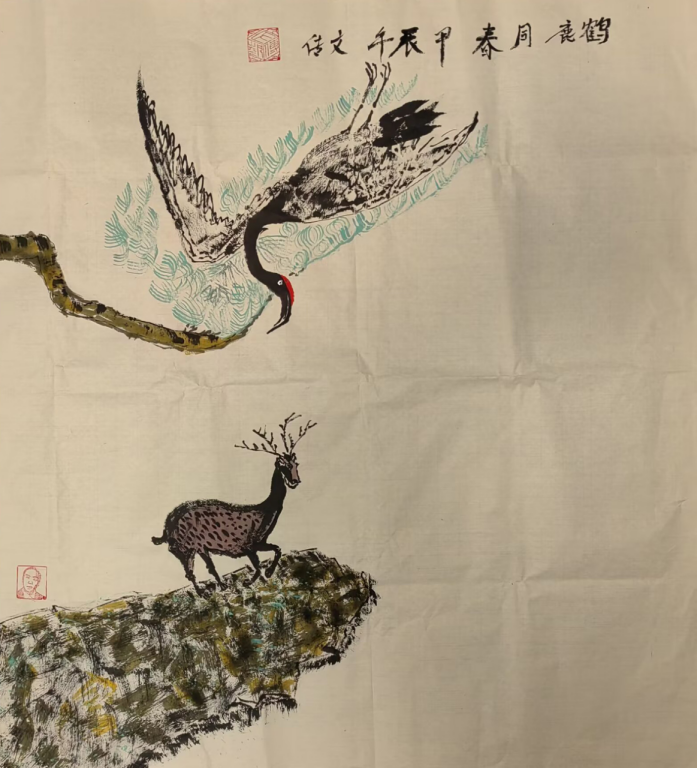 鹤鹿同春甲辰年文传